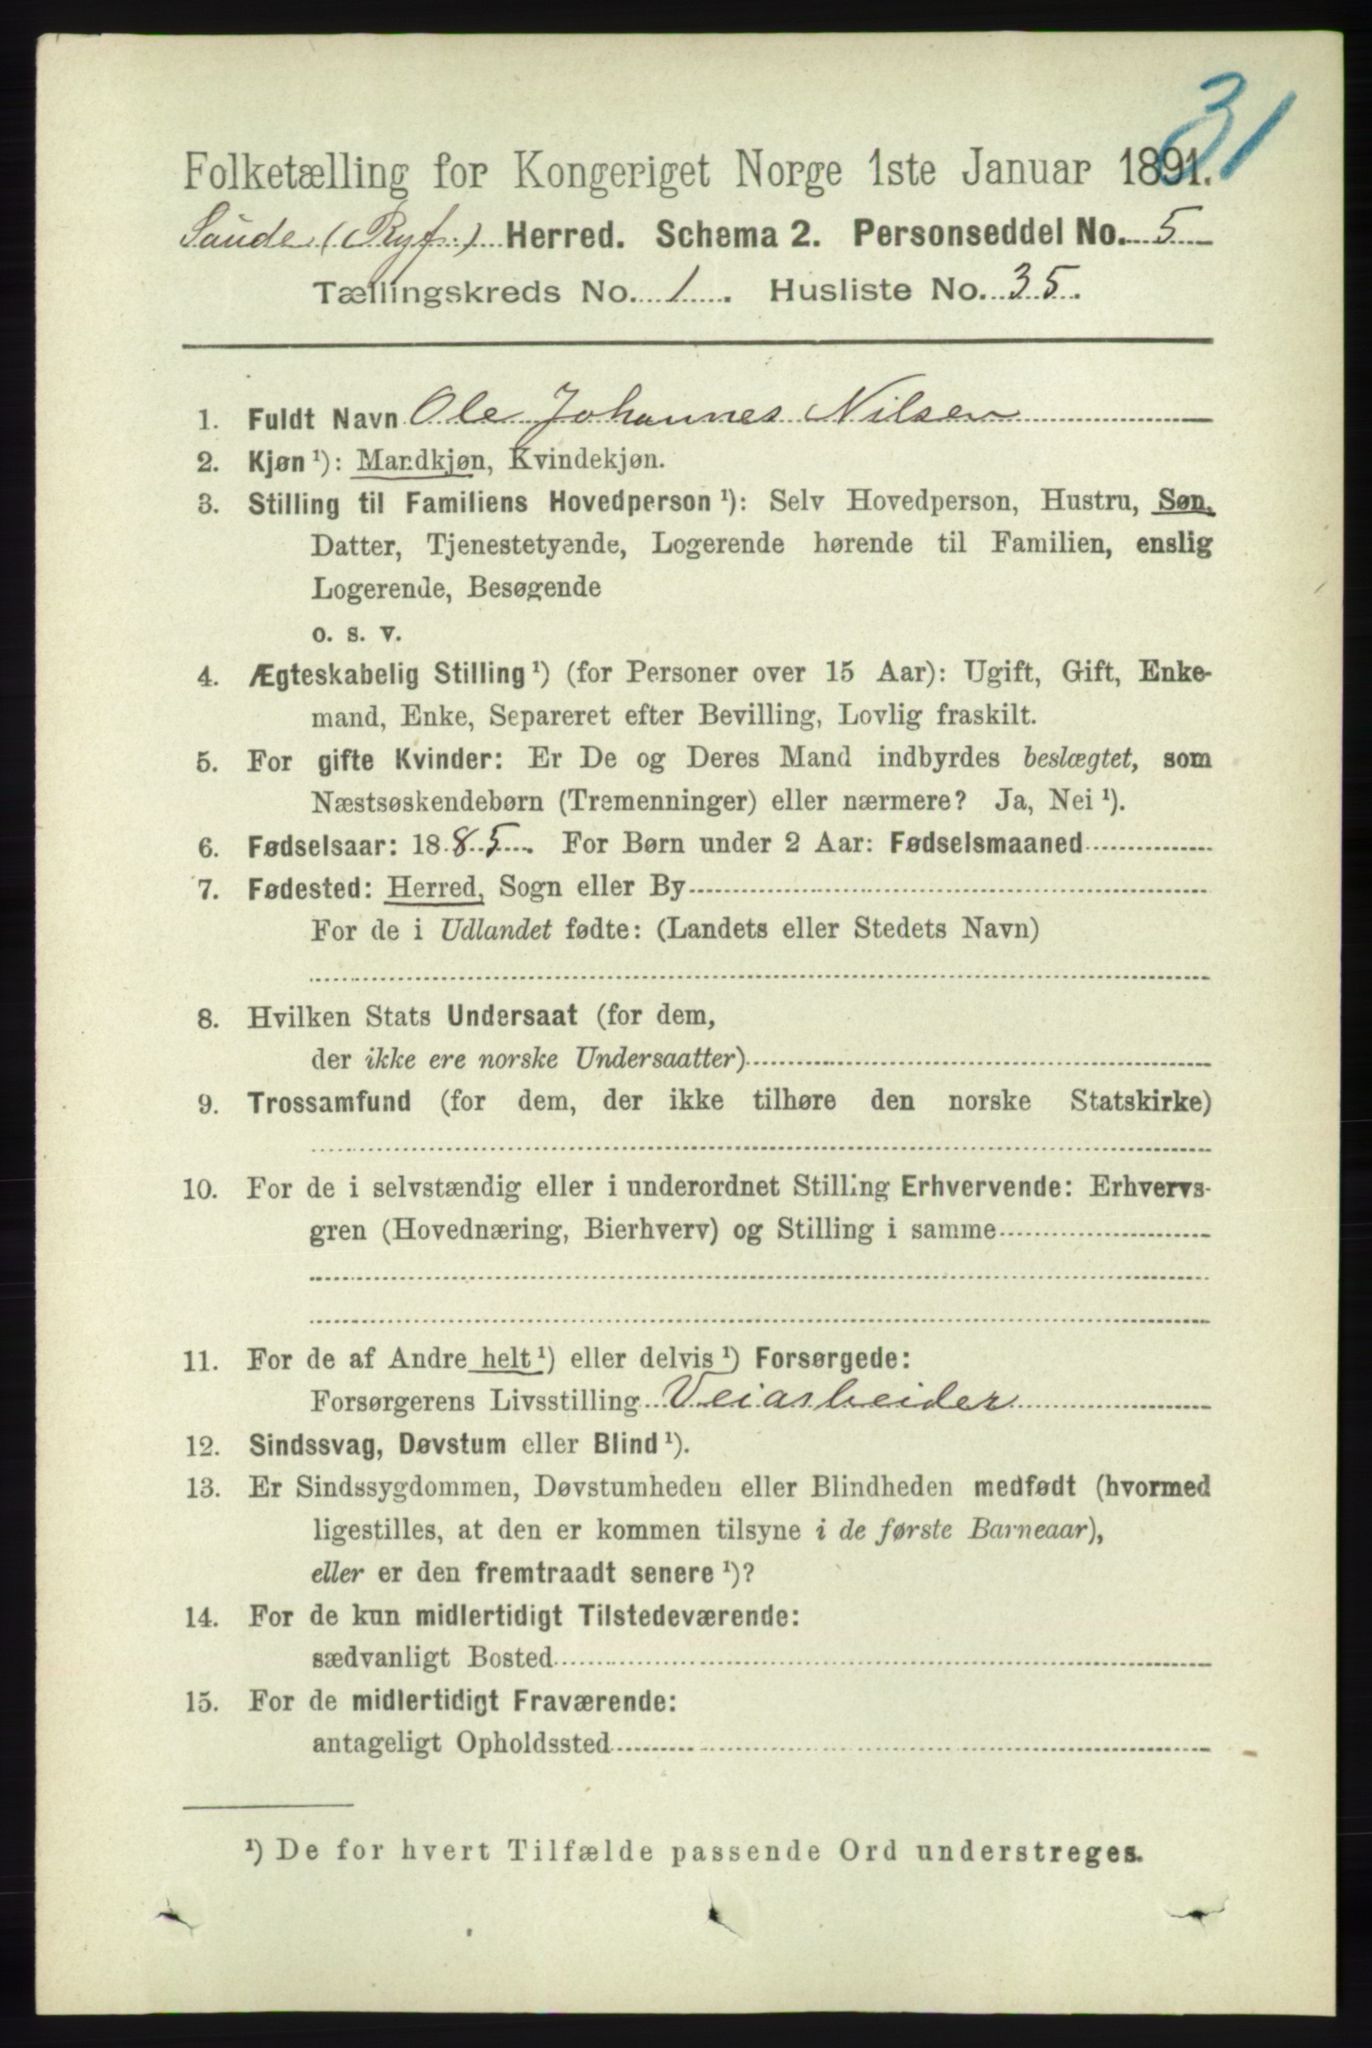 31
Folketælling for Kongeriget Norge 1ste Januar 1891.
Saude (Ryf.) Herred. Schema 2. Personseddel No. 5
Tællingskreds No. 1. Husliste No. 35.
1. Fuldt Navn Ole Johannes Nilsen
2. Kjøn ¹): Mandkjøn, Kvindekjøn.
3. Stilling til Familiens Hovedperson ¹): Selv Hovedperson, Hustru, Søn,
Datter, Tjenestetyende, Logerende hørende til Familien, enslig
Logerende, Besøgende
o. s. v.
4. Ægteskabelig Stilling ¹) (for Personer over 15 Aar): Ugift, Gift, Enke-
mand, Enke, Separeret efter Bevilling, Lovlig fraskilt.
5. For gifte Kvinder: Er De og Deres Mand indbyrdes beslægtet, som
Næstsøskendebørn (Tremenninger) eller nærmere? Ja, Nei ¹).
6. Fødselsaar: 1885. For Børn under 2 Aar: Fødselsmaaned
7. Fødested: Herred, Sogn eller By
For de i Udlandet fødte: (Landets eller Stedets Navn)
8. Hvilken Stats Undersaat (for dem,
der ikke ere norske Undersaatter)
9. Trossamfund (for dem, der ikke tilhøre den norske Statskirke)
10. For de i selvstændig eller i underordnet Stilling Erhvervende: Erhvervs-
gren (Hovednæring, Bierhverv) og Stilling i samme
11. For de af Andre helt ¹) eller delvis ¹) Forsørgede:
Forsørgerens Livsstilling Veiarbeider
12. Sindssvag, Døvstum eller Blind ¹).
13. Er Sindssygdommen, Døvstumheden eller Blindheden medfødt (hvormed
ligestilles, at den er kommen tilsyne i de første Barneaar),
eller er den fremtraadt senere ¹)?
14. For de kun midlertidigt Tilstedeværende:
sædvanligt Bosted
15. For de midlertidigt Fraværende:
antageligt Opholdssted
¹) De for hvert Tilfælde passende Ord understreges.